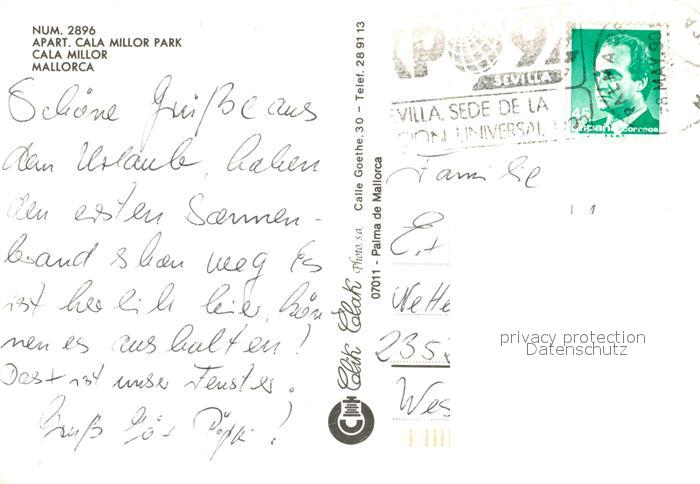 NUM. 2896
APART. CALA MILLOR PARK
CALA MILLOR
MALLORCA
Schöne Grüße aus
dem Urlaub, haben
den ersten Sonnen-
brand schon weg Es
ist herrlich hier, kön
nen es aushalten!
Das ist unser Fenster.
Gruß
Clik Clak Photo, s.a. Calle Goethe, 30 – Telef. 28 91 13
07011 - Palma de Mallorca
XPO 92
SEVILLA
EVILLA, SEDE DE LA
CION UNIVERSAL
PALMA
8 MAY 90
España correos
Familie
E.+
Wette
235
Wes
privacy protection
Datenschutz